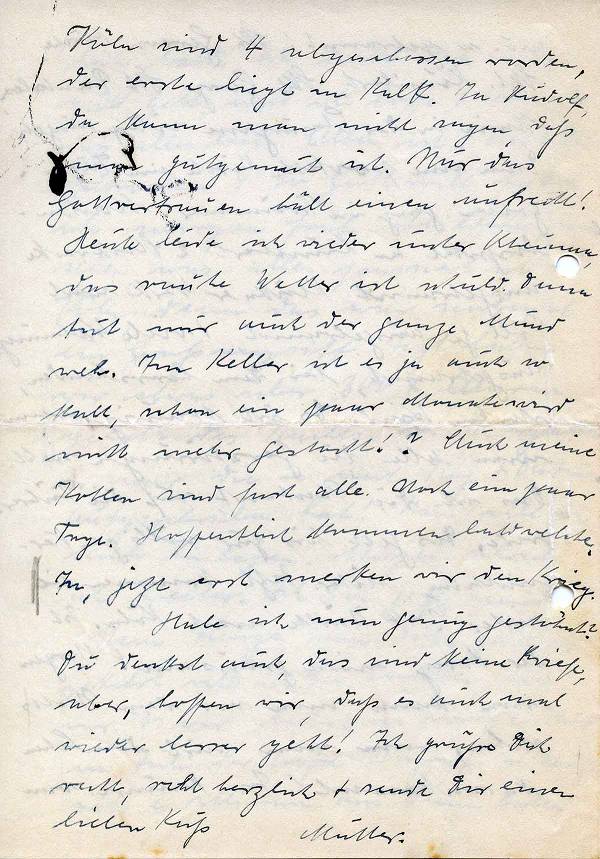 Köln sind 4 abgeschossen worden,
der erste liegt in Kalk. Ja Rudolf,
da kann man nicht sagen, daß
man gutgemut ist. Nur das
Gottvertrauen hält einen aufrecht!
Heute leide ich wieder unter Rheuma,
das rauhe Wetter ist schuld. Dann
tut mir auch der ganze Mund
weh. Im Keller ist es ja auch so
kalt, schon ein paar Monate wird
nicht mehr gestocht!? Auch meine
Kohlen sind fast alle. Noch ein paar
Tage. Hoffentlich kommen bald welche.
Ja, jetzt erst merken wir den Krieg.
Habe ich nun genug gestöhnt?
Du denkst auch, das sind keine Briefe,
aber, hoffen wir, daß es auch mal
wieder besser geht! Ich grüße Dich
recht, recht herzlich + sende Dir einen
lieben Kuß Mutter.